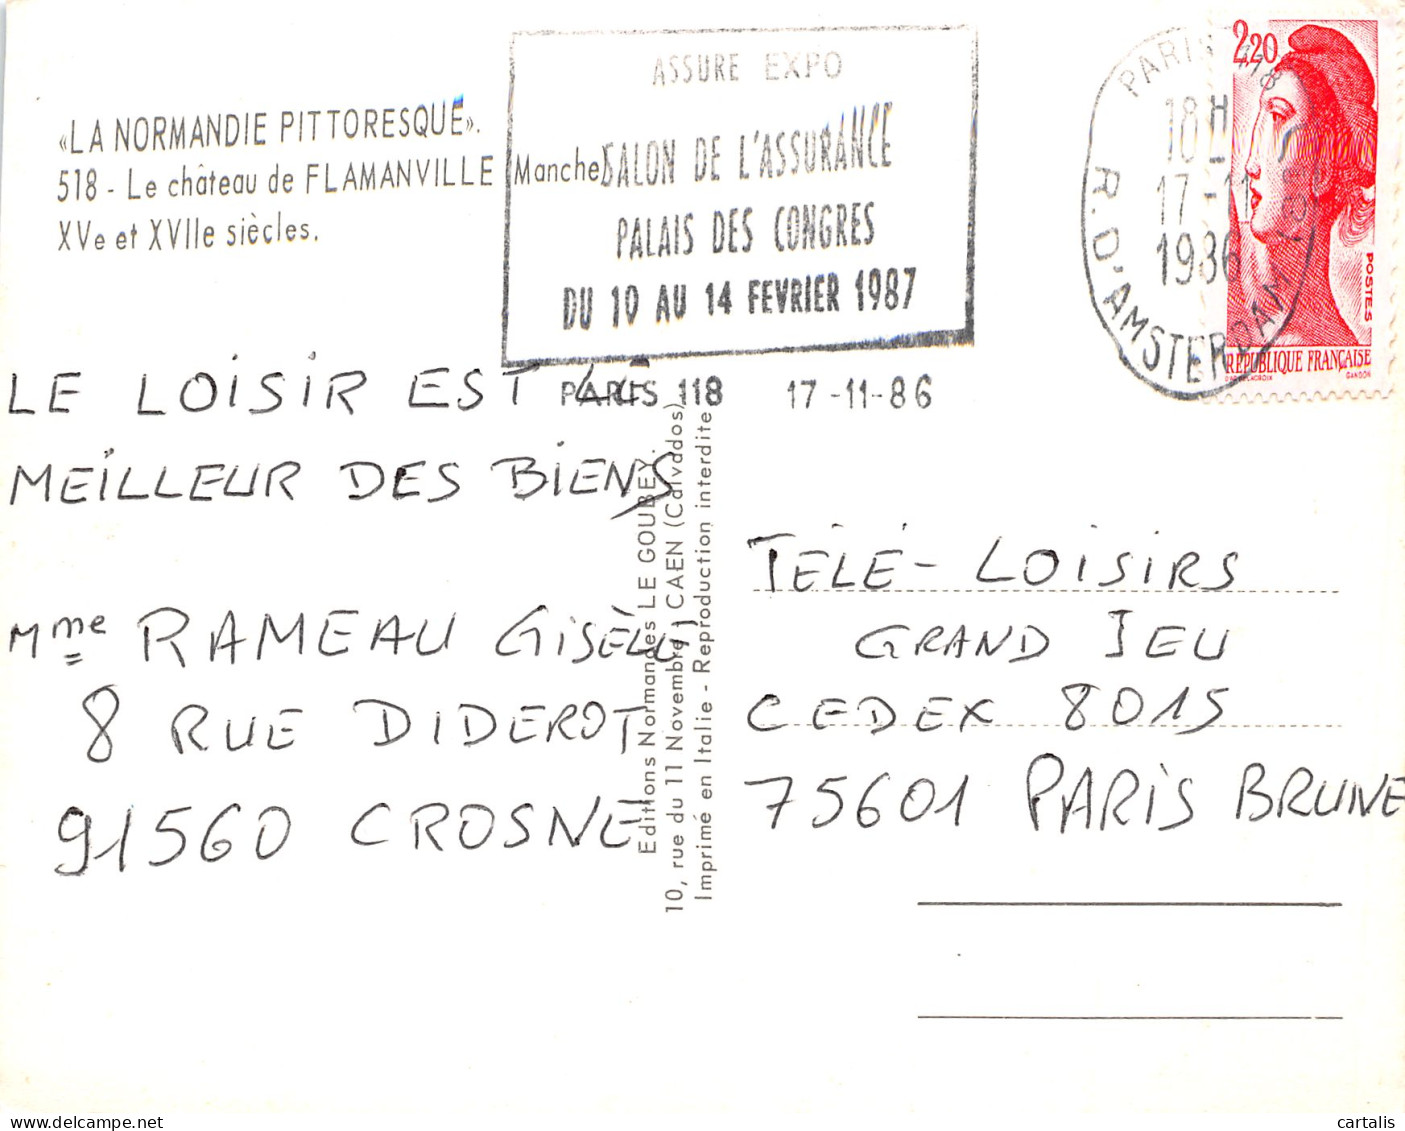 «LA NORMANDIE PITTORESQUE».
518 - Le château de FLAMANVILLE (Manche)
XVe et XVIIe siècles.
ASSURE EXPO
SALON DE L'ASSURANCE
PALAIS DES CONGRES
DU 10 AU 14 FEVRIER 1987
PARIS 118 17-11-86
PARIS 118
18H
17-11
1986
R. D'AMSTERDAM
2,20
POSTES
RÉPUBLIQUE FRANÇAISE
GANDON
LE LOISIR EST LE
MEILLEUR DES BIENS
Mme RAMEAU GISÈLE
8 RUE DIDEROT
91560 CROSNE
Editions Normandes LE GOUBEY.
10, rue du 11 Novembre, CAEN (Calvados)
Imprimé en Italie - Reproduction interdite
TÉLÉ-LOISIRS
GRAND JEU
CEDEX 8015
75601 PARIS BRUNE
cartalis